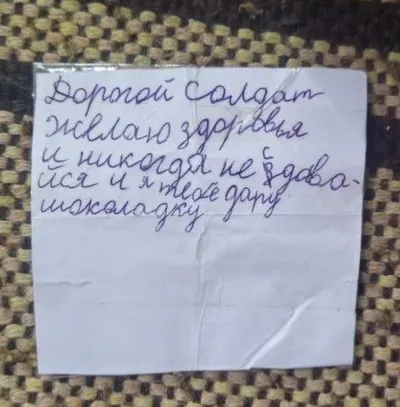 Дорогой Солдат
желаю здоровья
и никогда не сдова-
йся и я тебе дару
шоколадку